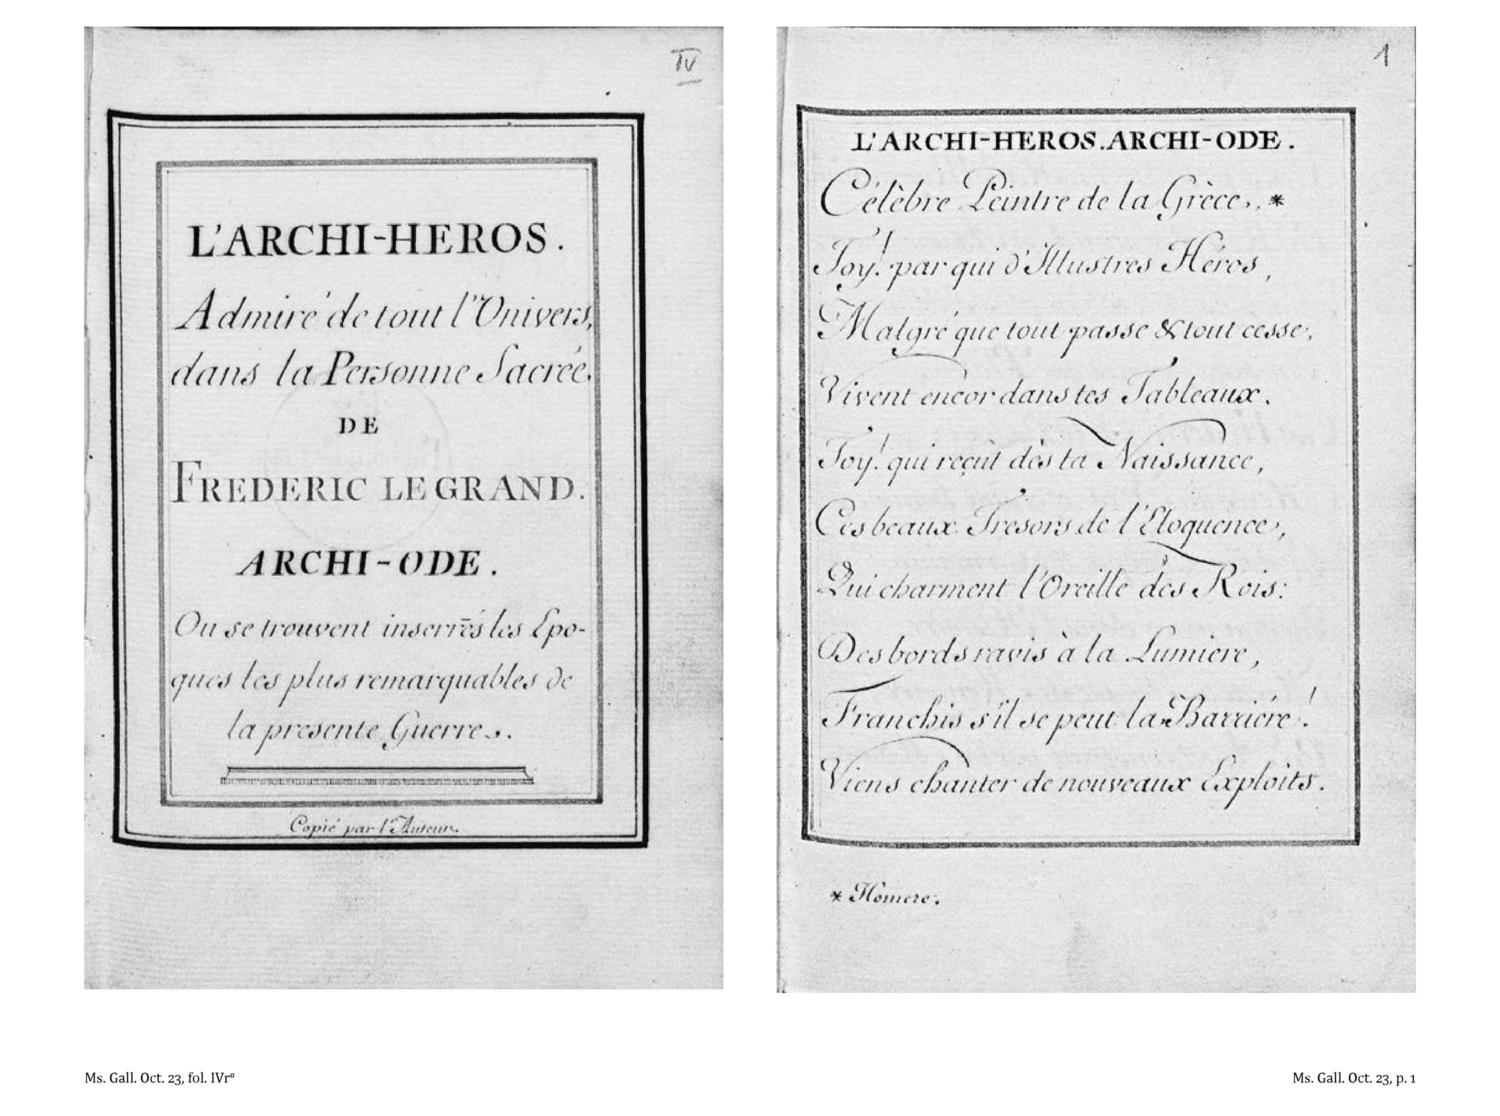 IV
L'ARCHI-HEROS.
Admiré de tout l'Univers,
dans la Personne Sacrée.
DE
FREDERIC LE GRAND.
ARCHI-ODE.
Ou se trouvent inserrés les Epo-
ques les plus remarquables de
la presente Guerre.
Copié par l'Auteur.
Ms. Gall. Oct. 23, fol. IVrº
1
L'ARCHI-HEROS. ARCHI-ODE.
Célèbre Peintre de la Grèce, *
Toy! par qui d'Illustres Héros,
Malgré que tout passe & tout cesse,
Vivent encor dans tes Tableaux.
Toy! qui reçût dès ta Naissance,
Ces beaux Tresors de l'Eloquence,
Qui charment l'Oreille des Rois:
Des bords ravis à la Lumiere,
Franchis s'il se peut la Barriére!
Viens chanter de nouveaux Exploits.
* Homere.
Ms. Gall. Oct. 23, p. 1